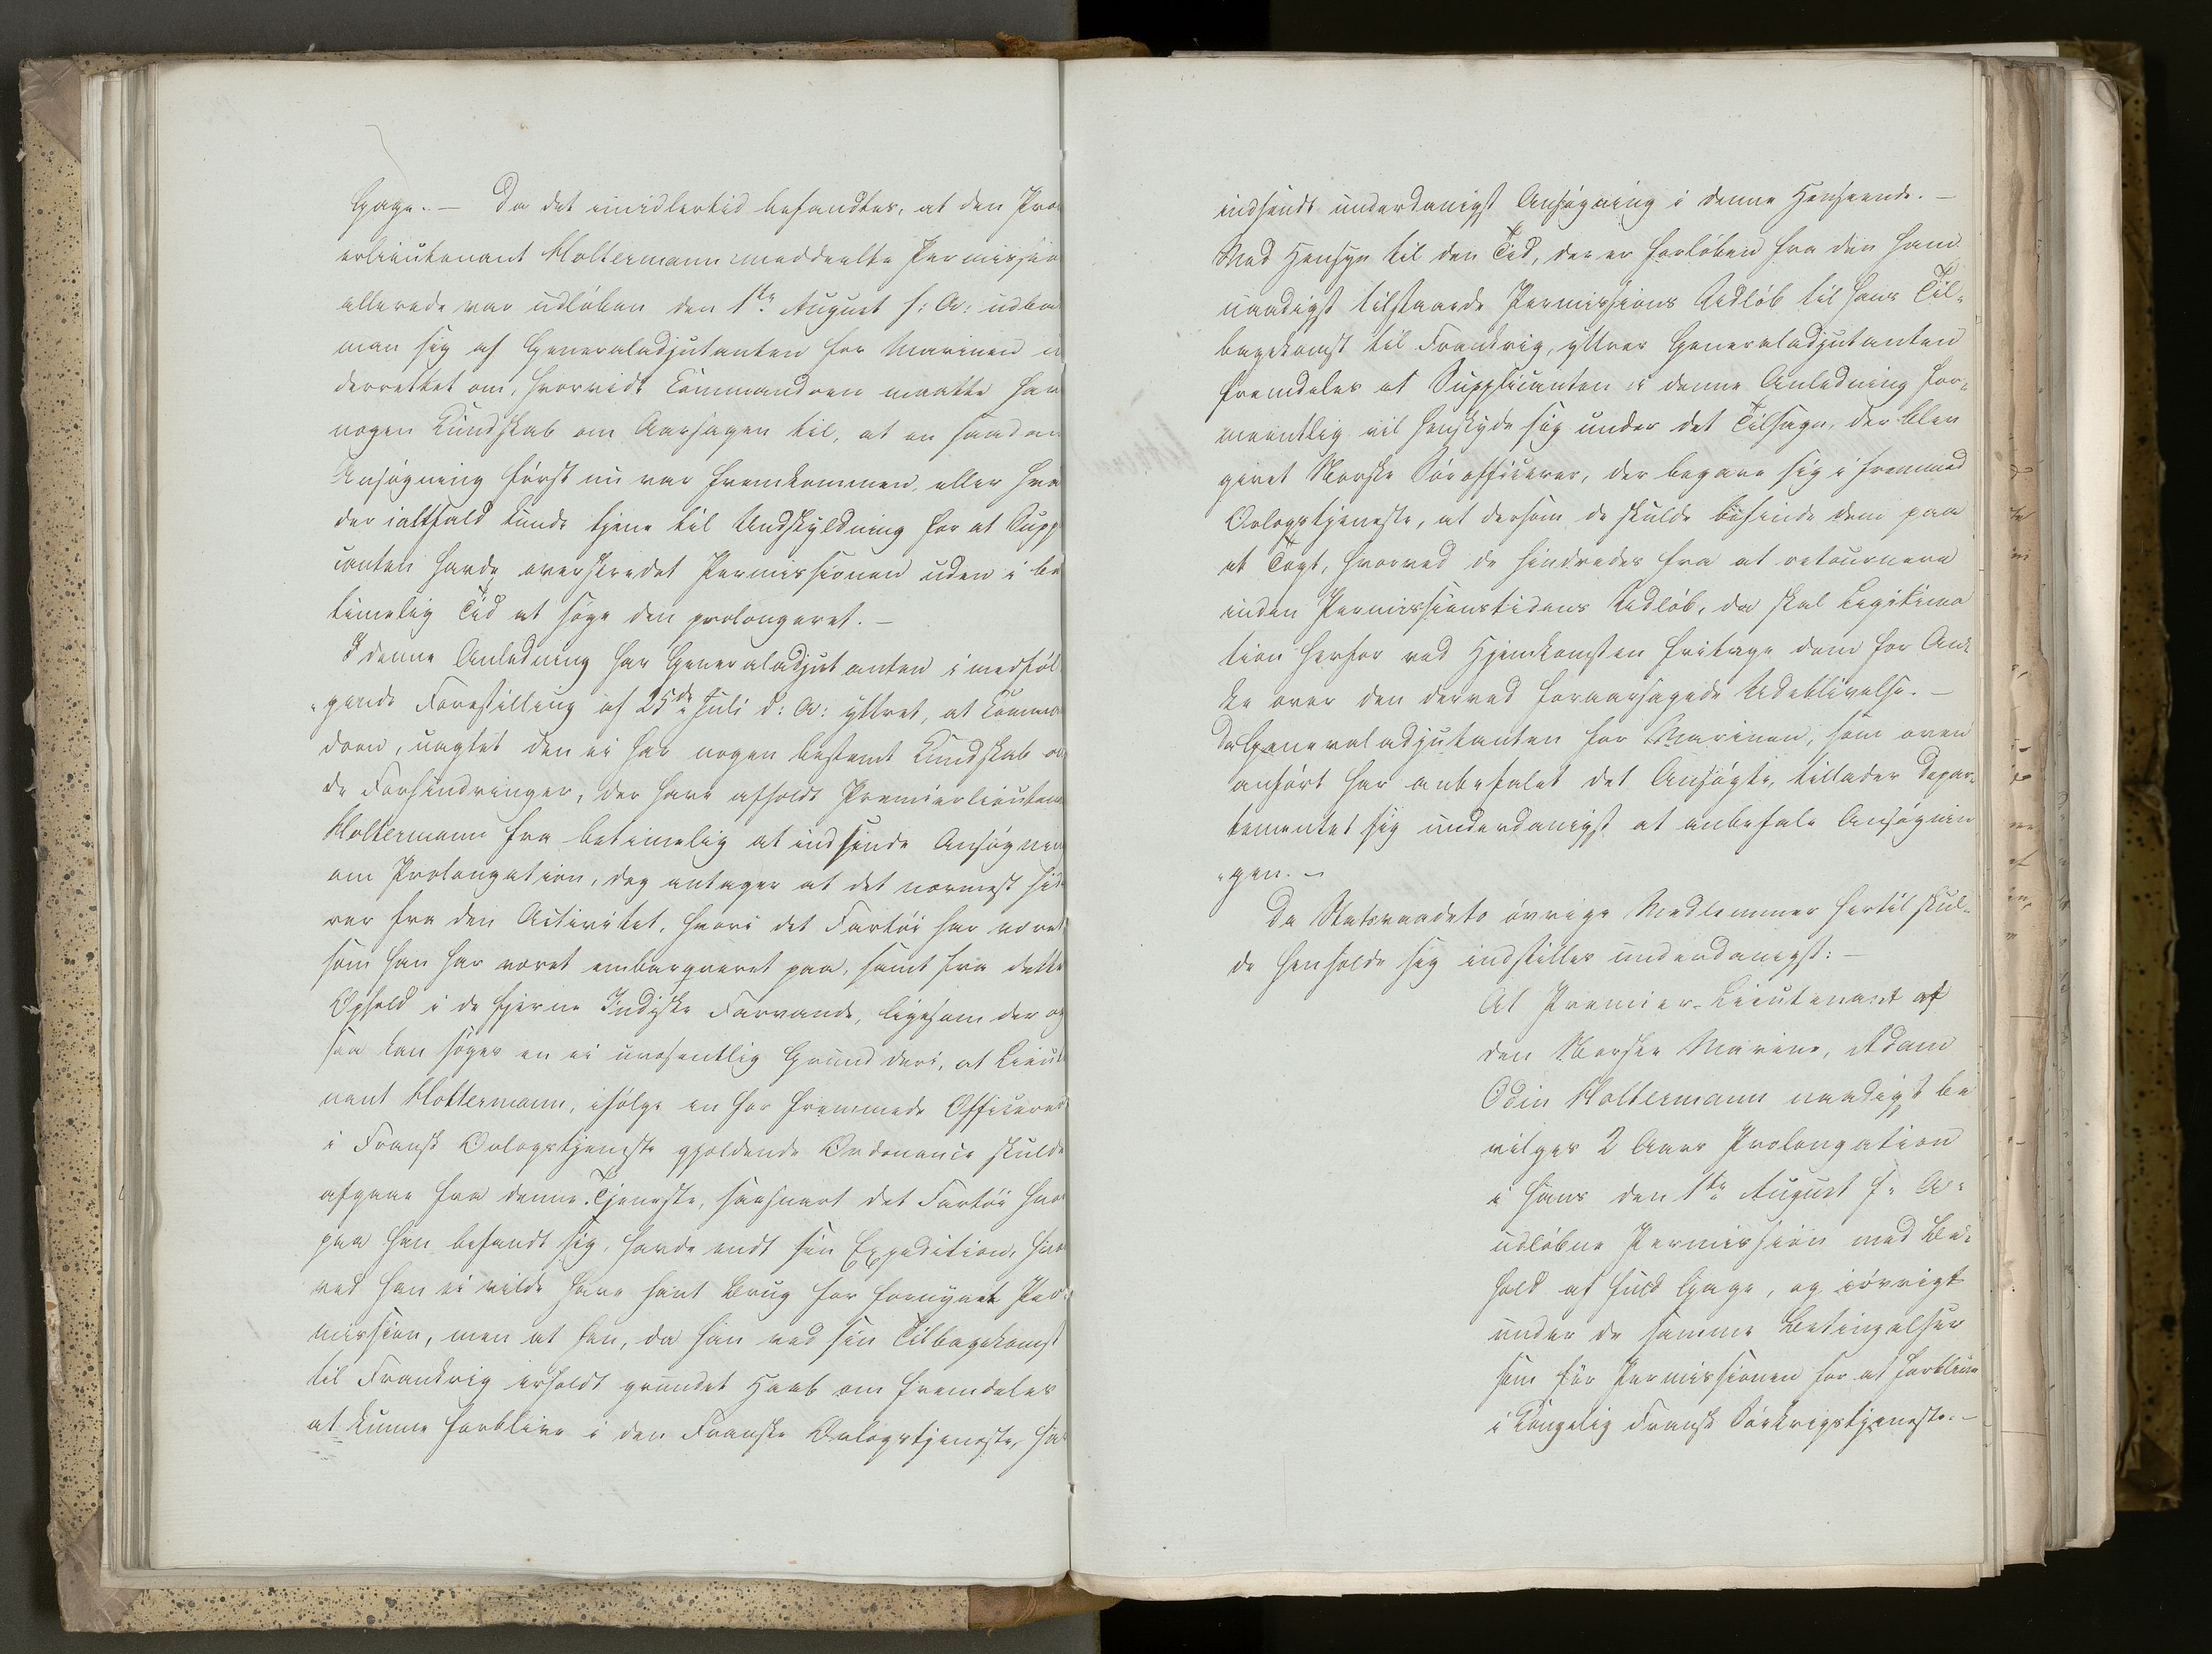 Gage. — Da det imidlertid befandtes, at den Pre
erlieutenant Holtermann meddeelte Permissio
allerede var udløben den 1ste August f: A: udba
man sig af Generaladjutanten for Marinen u
derrettet om, hvorvidt Commandoen maatte hav
nogen Kundskab om Aarsagen til, at en saadan
Ansøgning først nu var fremkommen, eller hva
der ialtfald kunde tjene til Undskyldning for at Supp
canten havde overskredet Permissionen uden i be
timelig Tid at søge den prolongeret. —
I denne Anledning har Generaladjutanten i medføl
"gende Forestilling af 25de Juli d: A: yttret, at Comma
doen, uagtet den ei har nogen bestemt Kundskab o
de Forhindringer, der have afholdt Premierlieuten
Holtermann fra betimelig at indsende Ansøgnin
om Prolongation, dog antager at det nærmest hid
rør fra den Activitet, hvori det Fartøi har været
som han har været embarqueret paa, samt fra dette
Ophold i de fjerne Indiske Farvande, ligesom der og
saa kan søges en ei uvæsentlig Grund deri, at Lieut
nant Holtermann, ifølge en for fremmede Officerer
i Fransk Orlogstjeneste gjældende Ordonance skulde
afgaae fra denne Tjeneste, saasnart det Fartøi hvor
paa han befandt sig, havde endt sin Expedition, hvor
ved han ei vilde have havt Brug for fornyet Per-
mission, men at han, da han ved sin Tilbagekomst
til Frankrig erholdt grundet Haab om fremdeles
at kunne forblive i den Franske Orlogstjeneste, ha
indsendt underdanigst Ansøgning i denne Henseende. —
Med Hensyn til den Tid, der er forløben fra den ham
naadigst tilstaaede Permissions Udløb til hans Til-
bagekomst til Frankrig, yttrer Generaladjutanten
fremdeles at Supplicanten i denne Anledning for-
meentlig vil henskyde sig under det Tilsagn, der blev
givet Norske Søeofficerer, der begave sig i fremmed
Orlogstjeneste, at dersom de skulde befinde dem paa
et Togt, hvorved de hindredes fra at retournere
inden Permissionstidens Udløb, da skal Legitima
tion herfor ved Hjemkomsten fritage dem for An-
ke over den derved foraarsagede Udeblivelse. —
Da Generaladjutanten for Marinen, som oven
anført har anbefalet det Ansøgte, tillader Depar-
tementet sig underdanigst at anbefale Ansøgnin
"gen. —
Da Statsraadets øvrige Medlemmer hertil skul-
de henholde sig indstilles underdanigst: —
At Premier-Lieutenant af
den Norske Marine, Adam
Odin Holtermann naadigst be
vilges 2 Aars Prolongation
i hans den 1ste August f: A:
udløbne Permission med Be-
hold af fuld Gage, og iøvrigt
under de samme Betingelser
som før Permissionen for at forblive
i Kongelig Fransk Søekrigstjeneste. —